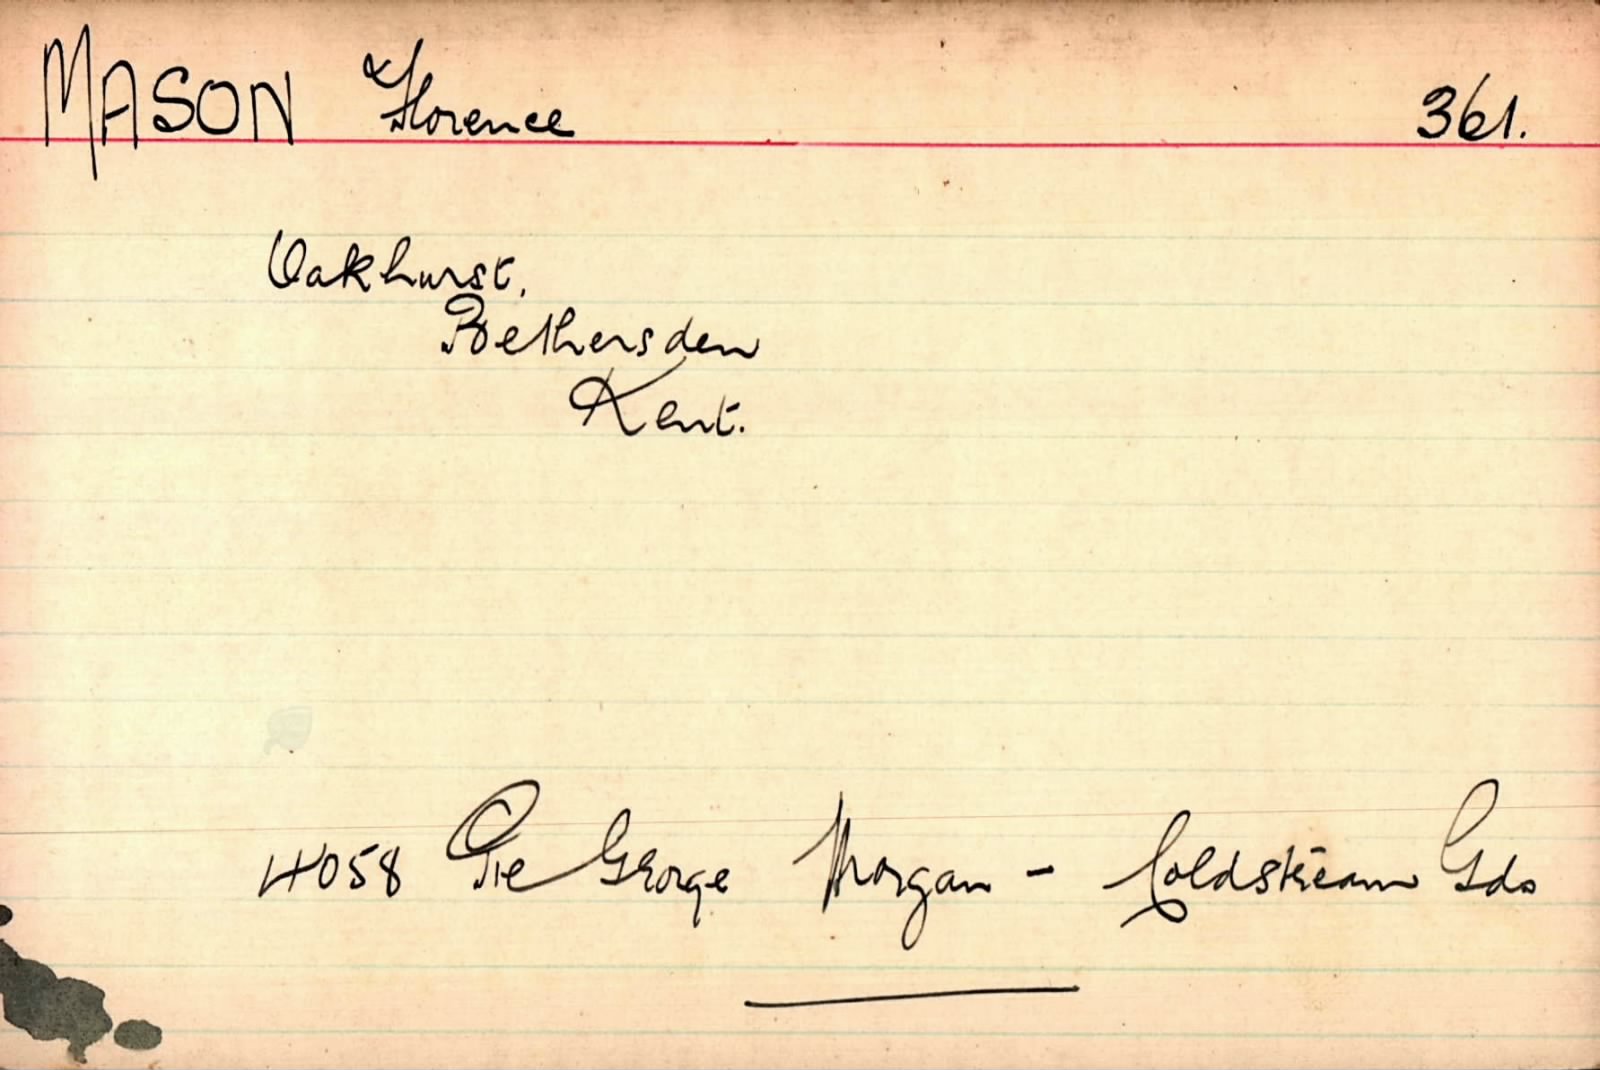 MASON Florence 361.
Oakhurst,
Bethersden
Kent.
4058 Pte George Morgan - Coldstream Gds